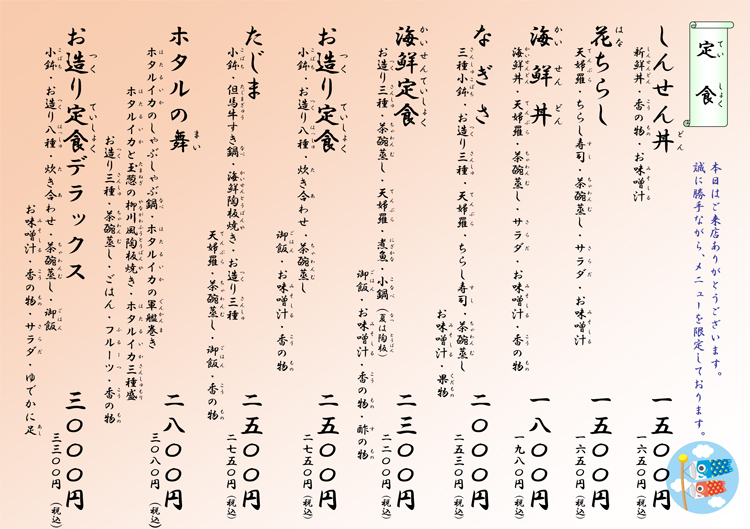 定食
本日はご来店ありがとうございます。
誠に勝手ながら、メニューを限定しております。
しんせん丼
新鮮丼・香の物・お味噌汁
一五〇〇円
一六五〇円(税込)
花ちらし
天婦羅・ちらし寿司・茶碗蒸し・サラダ・お味噌汁
一五〇〇円
一六五〇円(税込)
海鮮丼
海鮮丼・天婦羅・茶碗蒸し・サラダ・お味噌汁・香の物
一八〇〇円
一九八〇円(税込)
なぎさ
三種小鉢・お造り三種・天婦羅・ちらし寿司・茶碗蒸し
お味噌汁・果物
二〇〇〇円
二五三〇円(税込)
海鮮定食
お造り三種・茶碗蒸し・天婦羅・煮魚・小鍋(夏は陶板)
御飯・お味噌汁・香の物・酢の物
二三〇〇円
二二〇〇円(税込)
お造り定食
小鉢・お造り八種・炊き合わせ・茶碗蒸し
御飯・お味噌汁・香の物
二五〇〇円
二七五〇円(税込)
たじま
小鉢・但馬牛すき鍋・海鮮陶板焼き・お造り三種
天婦羅・茶碗蒸し・御飯・香の物
二五〇〇円
二七五〇円(税込)
ホタルの舞
ホタルイカのしゃぶしゃぶ鍋・ホタルイカの軍艦巻き
ホタルイカと玉葱の柳川風陶板焼き・ホタルイカ三種盛
お造り三種・茶碗蒸し・ごはん・フルーツ・香の物
二八〇〇円
三〇八〇円(税込)
お造り定食デラックス
小鉢・お造り八種・炊き合わせ・茶碗蒸し・御飯
お味噌汁・香の物・サラダ・ゆでかに足
三〇〇〇円
三三〇〇円(税込)